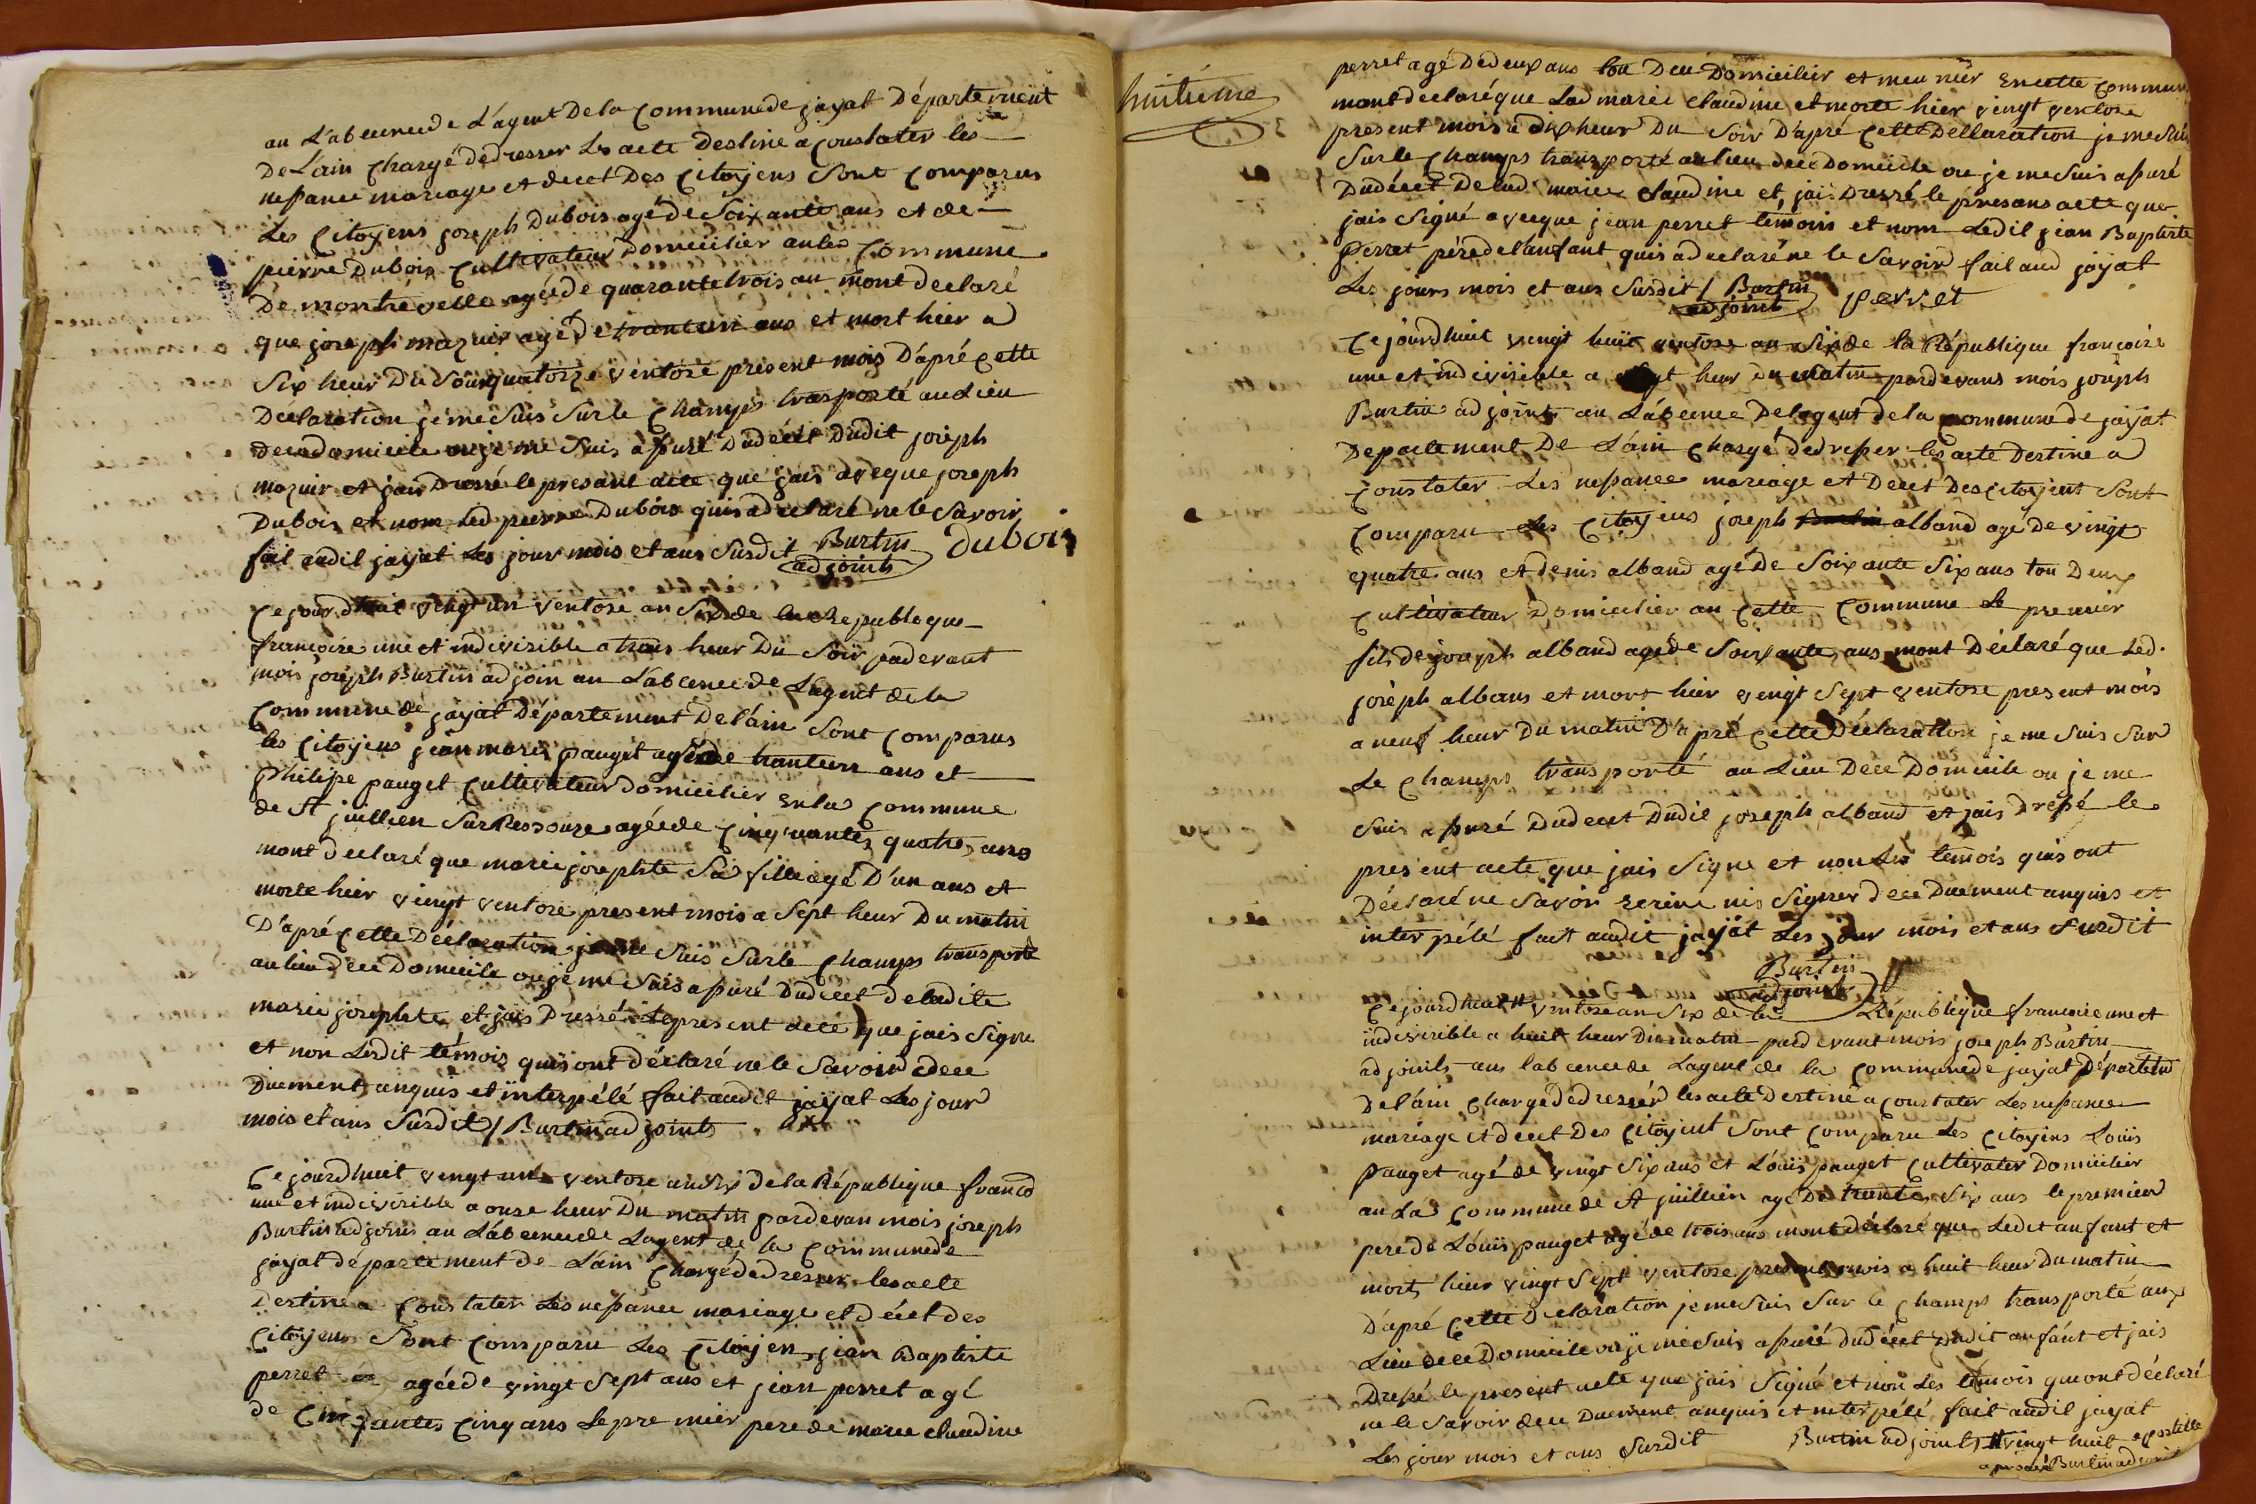 au L'abcencede L'agent De la Communede jayat Département
De L'ain Chargé dedresser Les acte Destine a Constater les
nessance mariage et decet Des Citoyens Sont Comparus
Les Citoyens joseph Dubois agé de Soixante ans et de
pierre Dubois Cultivateur Domicilier au la Commune
De montrévelle agéede quarante trois an mont declaré
que joseph mazuir agé de trante un ans et mort hier a
Six heur Du Soir quatorze ventose present mois D'apré Cette
Declaration je me Suis Sur le Champs trasporté au Lieu
dece domicile ou je me Suis assuré Dudécet Dudit joseph
mazuir et jais Dressé le presant acte que jais aveque joseph
Dubois et nom Led pierre Dubois quis adeclaré ne le Savoir
fait audit jayat Les jour mois et ans Susdit Burtin adjoint Dubois
Ce jourdhuit vengt un ventose an Six de la Republeque
francoise une et indivisible a trois heur Du Soir pardevant
mois joseph Burtin adjoin au L'abcence de Lagent de la
Commune de jayat Département De L'ain Sont Comparus
les Citoyens jean marie pauget agé de tranteun ans et
Philipe pauget Cultivateur Domicilier en la Commune
de St juillien Sur Ressouze agéede Cinquante quatre ans
mont declaré que marie josephte Sa fille agé D'un ans et
morte hier vingt ventose present mois a Sept heur Du matin
D'apré Cette Déclaration je me Suis Sur le Champs transporté
au lieu dece Domicile ou je me Suis assuré Dudecet De ladite
marie josephte et jais Dressé le present acte que jais Signe
et non Lesdit témois quis ont déclaré ne le Savoir dece
Duement anquis et interpélé fait audit jayat Les jour
mois et ans Susdit / Burtin adjoint
Ce jourdhuit vengt une ventose an Six de la République franco
une et indivisible a onze heur Du matin pardevan mois joseph
Burtin adjoins au L'abcencede Lagent de la Communede
jayat département de Lain Chargé dedresser les acte
Destine a Constater Les nessance mariage et décet des
Citoyens Sont Comparu Les Citoyens jean Baptiste
perret agéede vingt Sept ans et jean perret agé
de Cinqantes Cinq ans Le premier pere de marie claudine
huitieme
perret agé Dedeux ans tou Deu Domicilier et meu nier en cette Commun
mont declaré que Lad marie claudine et morte hier vengt ventose
present mois a dix heur Du Soir D'apré Cette Dellaration je me Suis
Sur le Champs transporté au Lieu dece Domicile ou je me Suis assuré
Dudécet De Lad marie claudine et jai Dressé le presans acte que
jais Signé aveque jean perret témoins et nom Ledit jean Baptiste
Perret pére de lanfant quis adeclaré ne le Savoir fait aud jayat
Les jours mois et ans Susdit / Burtin adjoint perret
Ce jourdhuit vengt huit ventose an Six de la République francoise
une et indivisible a heur du matin pardevans mois joseph
Burtin adjoint au L'abcence De Lagent de la Commune de jayat
Departement De L'ain Chargé dedresser les acte Destine a
Constater Les nessance mariage et Decet Des Citoyent Sont
Comparu Les Citoyens joseph alband agé de vingt
quatre ans et denis alband agé De Soixante Six ans tou Deux
Cultivateur Domicilier au Cette Commune Le premier
fils de joseph alband agé de Soixante ans mont Déclaré que Led.
joseph albans et mort hier vengt Sept ventose present mois
a neuf heur Du matin D'apré Cette Déclaration je me Suis Sur
Le Champs transporté au Lieu Dece Domicile ou je me
Suis assuré Dudecet Dudit joseph alband et jais Dressé le
present acte que jais Signe et non Les temois quis ont
Déclaré ne Savoir ecrire nis Signer dece Duement anquis et
interpélé fait audit jayat Les jour mois et ans Susdit
Burtin adjoint
Ce jourdhuit # ventose an Six de la République francoise une et
indivisible a huit heur Du matin pardevant mois joseph Burtin
adjoints au labcence de Lagent de la Communede jayat Départetm
De l'ain Chargé dedresser les acte destiné a Constater Les nessance
mariage et decet Des Citoyent Sont Comparu Les Citoyens Loüis
pauget agé de vingt Six ans et Loüis pauget Cultivater Domicilier
au La Commune de St juillien agé De trante Six ans le premier
pere de Loüis pauget agé de trois ans mont déclaré que Ledit anfant et
mort hier vingt Sept ventose present mois a huit heur Du matin
D'apré Cette Declaration je me Suis Sur le Champs transporté aux
Lieu dece Domicile ou je me Suis assuré dudécet Dudit anfant et jais
Dressé le present acte que jais Signé et non Les témois quiont déclaré
ne le Savoir dece Duement anquis et interpélé fait audit jayat
Les jour mois et ans Susdit Burtin adjoint # vingt huit apostille
aprouvé Burtin adjoint